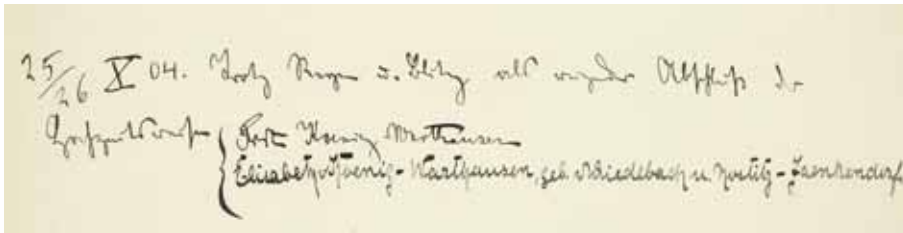 25/26 X 04. Trotz Regen u. Blitz als reizender Abschluß der
Hochzeitsreise { Fritz Koenig Warthausen
Elisabeth Koenig-Warthausen, geb. v. Schiedebach u. Nostitz-Jaenkendorf.